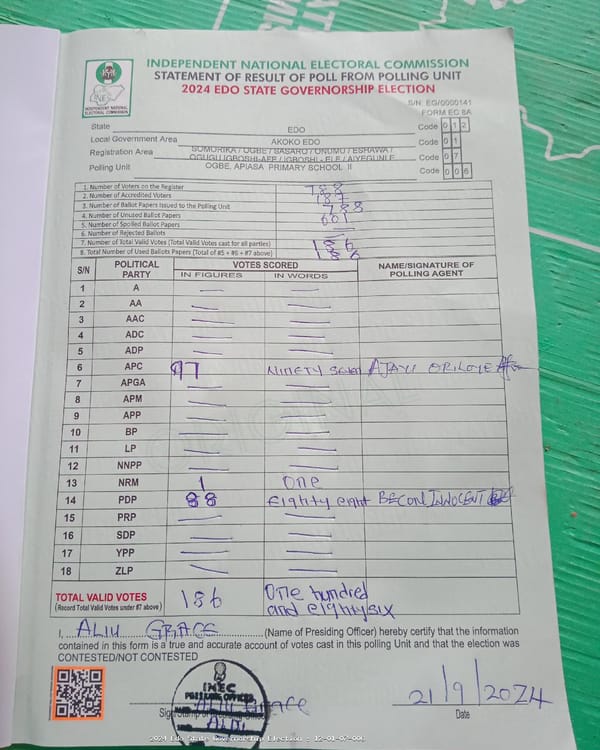 INDEPENDENT NATIONAL ELECTORAL COMMISSION
STATEMENT OF RESULT OF POLL FROM POLLING UNIT
2024 EDO STATE GOVERNORSHIP ELECTION
INDEPENDENT NATIONAL ELECTORAL COMMISSION
S/N: EG/0000141
FORM EC 8A
State EDO Code 0 1 2
Local Government Area AKOKO EDO Code 0 1
Registration Area SOMORIKA / OGBE / SASARO / ONUMU / ESHAWA / OGUGU IGBOSHI-AFE / IGBOSHI - ELE / AIYEGUNLE Code 0 7
Polling Unit OGBE, APIASA PRIMARY SCHOOL II Code 0 0 6
1. Number of Voters on the Register 788
2. Number of Accredited Voters 187
3. Number of Ballot Papers Issued to the Polling Unit 788
4. Number of Unused Ballot Papers 601
5. Number of Spoiled Ballot Papers
6. Number of Rejected Ballots
7. Number of Total Valid Votes (Total Valid Votes cast for all parties) 186
8. Total Number of Used Ballots Papers (Total of #5 + #6 + #7 above) 186
S/N POLITICAL PARTY VOTES SCORED NAME/SIGNATURE OF POLLING AGENT
IN FIGURES IN WORDS
1 A
2 AA
3 AAC
4 ADC
5 ADP
6 APC 97 NINETY Seven AJAYI ORILOYE
7 APGA
8 APM
9 APP
10 BP
11 LP
12 NNPP
13 NRM 1 One
14 PDP 88 Eighty eight BECON INNOCENT
15 PRP
16 SDP
17 YPP
18 ZLP
TOTAL VALID VOTES 186 One hundred and eighty six
(Record Total Valid Votes under #7 above)
I, ALIU GRACE (Name of Presiding Officer) hereby certify that the information
contained in this form is a true and accurate account of votes cast in this polling Unit and that the election was
CONTESTED/NOT CONTESTED
INEC
PRESIDING OFFICER
21/9/2024
Date
2024 Edo State Governorship Election - 12-01-07-006